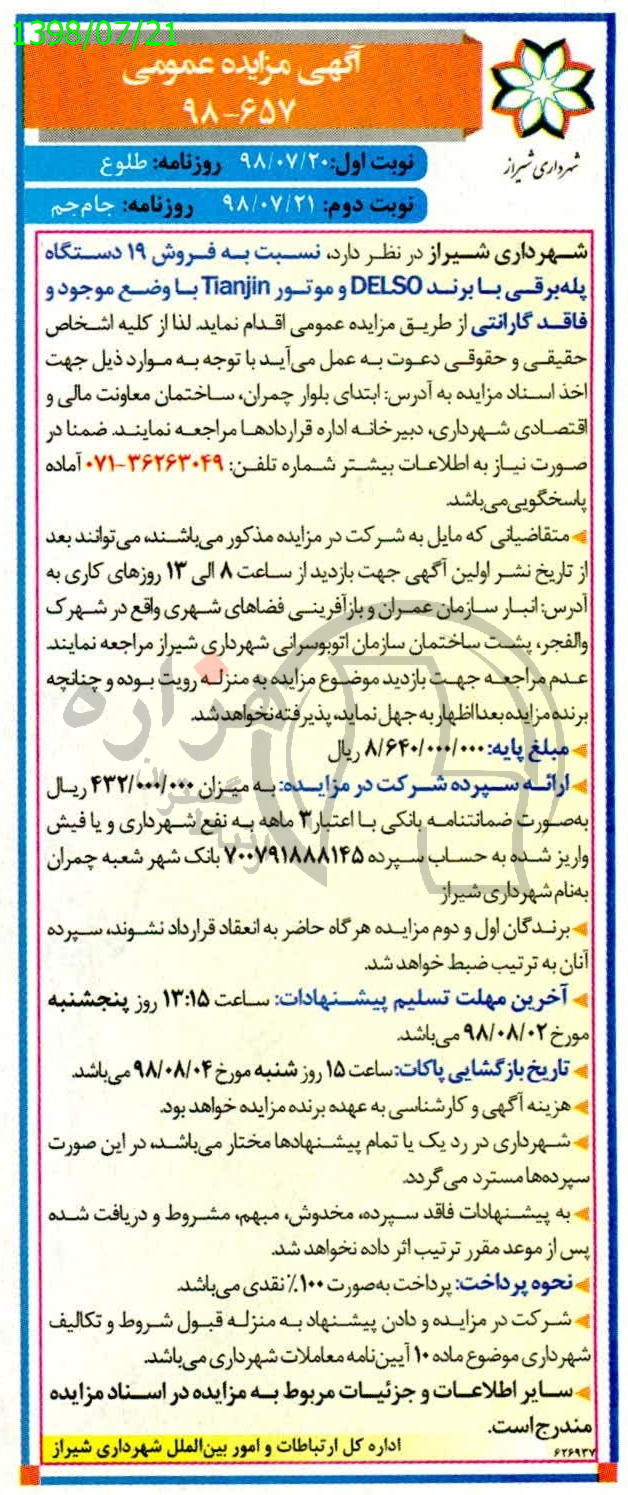 1398/07/21
آگهی مزایده عمومی
۹۸-۶۵۷
شهرداری شیراز
نوبت اول: ۹۸/۰۷/۲۰ روزنامه: طلوع
نوبت دوم: ۹۸/۰۷/۲۱ روزنامه: جام‌جم
شهرداری شیراز در نظر دارد، نسبت به فروش ۱۹ دستگاه
پله‌برقی با برند DELSO و موتور Tianjin با وضع موجود و
فاقد گارانتی از طریق مزایده عمومی اقدام نماید. لذا از کلیه اشخاص
حقیقی و حقوقی دعوت به عمل می‌آید با توجه به موارد ذیل جهت
اخذ اسناد مزایده به آدرس: ابتدای بلوار چمران، ساختمان معاونت مالی و
اقتصادی شهرداری، دبیرخانه اداره قراردادها مراجعه نمایند. ضمنا در
صورت نیاز به اطلاعات بیشتر شماره تلفن: ۳۶۲۶۳۰۴۹-۰۷۱ آماده
پاسخگویی‌می‌باشد.
متقاضیانی که مایل به شرکت در مزایده مذکور می‌باشند، می‌توانند بعد
از تاریخ نشر اولین آگهی جهت بازدید از ساعت ۸ الی ۱۳ روزهای کاری به
آدرس: انبار سازمان عمران و بازآفرینی فضاهای شهری واقع در شهرک
والفجر، پشت ساختمان سازمان اتوبوسرانی شهرداری شیراز مراجعه نمایند.
عدم مراجعه جهت بازدید موضوع مزایده به منزله رویت بوده و چنانچه
برنده مزایده بعدا اظهار به جهل نماید، پذیرفته نخواهد شد.
مبلغ پایه: ۸/۶۴۰/۰۰۰/۰۰۰ ریال
ارائه سپرده شرکت در مزایده: به میزان ۴۳۲/۰۰۰/۰۰۰ ریال
به‌صورت ضمانتنامه بانکی با اعتبار ۳ ماهه به نفع شهرداری و یا فیش
واریز شده به حساب سپرده ۷۰۰۷۹۱۸۸۸۱۴۵ بانک شهر شعبه چمران
به‌نام شهرداری شیراز
برندگان اول و دوم مزایده هرگاه حاضر به انعقاد قرارداد نشوند، سپرده
آنان به ترتیب ضبط خواهد شد.
آخرین مهلت تسلیم پیشنهادات: ساعت ۱۳:۱۵ روز پنجشنبه
مورخ ۹۸/۰۸/۰۲ می‌باشد.
تاریخ بازگشایی پاکات: ساعت ۱۵ روز شنبه مورخ ۹۸/۰۸/۰۴ می‌باشد.
هزینه آگهی و کارشناسی به عهده برنده مزایده خواهد بود.
شهرداری در رد یک یا تمام پیشنهادها مختار می‌باشد، در این صورت
سپرده‌ها مسترد می گردد.
به پیشنهادات فاقد سپرده، مخدوش، مبهم، مشروط و دریافت شده
پس از موعد مقرر ترتیب اثر داده نخواهد شد.
نحوه پرداخت: پرداخت به‌صورت ۱۰۰٪ نقدی می‌باشد.
شرکت در مزایده و دادن پیشنهاد به منزله قبول شروط و تکالیف
شهرداری موضوع ماده ۱۰ آیین‌نامه معاملات شهرداری می‌باشد.
سایر اطلاعات و جزئیات مربوط به مزایده در اسناد مزایده
مندرج است.
۶۲۶۹۳۷
اداره کل ارتباطات و امور بین‌الملل شهرداری شیراز